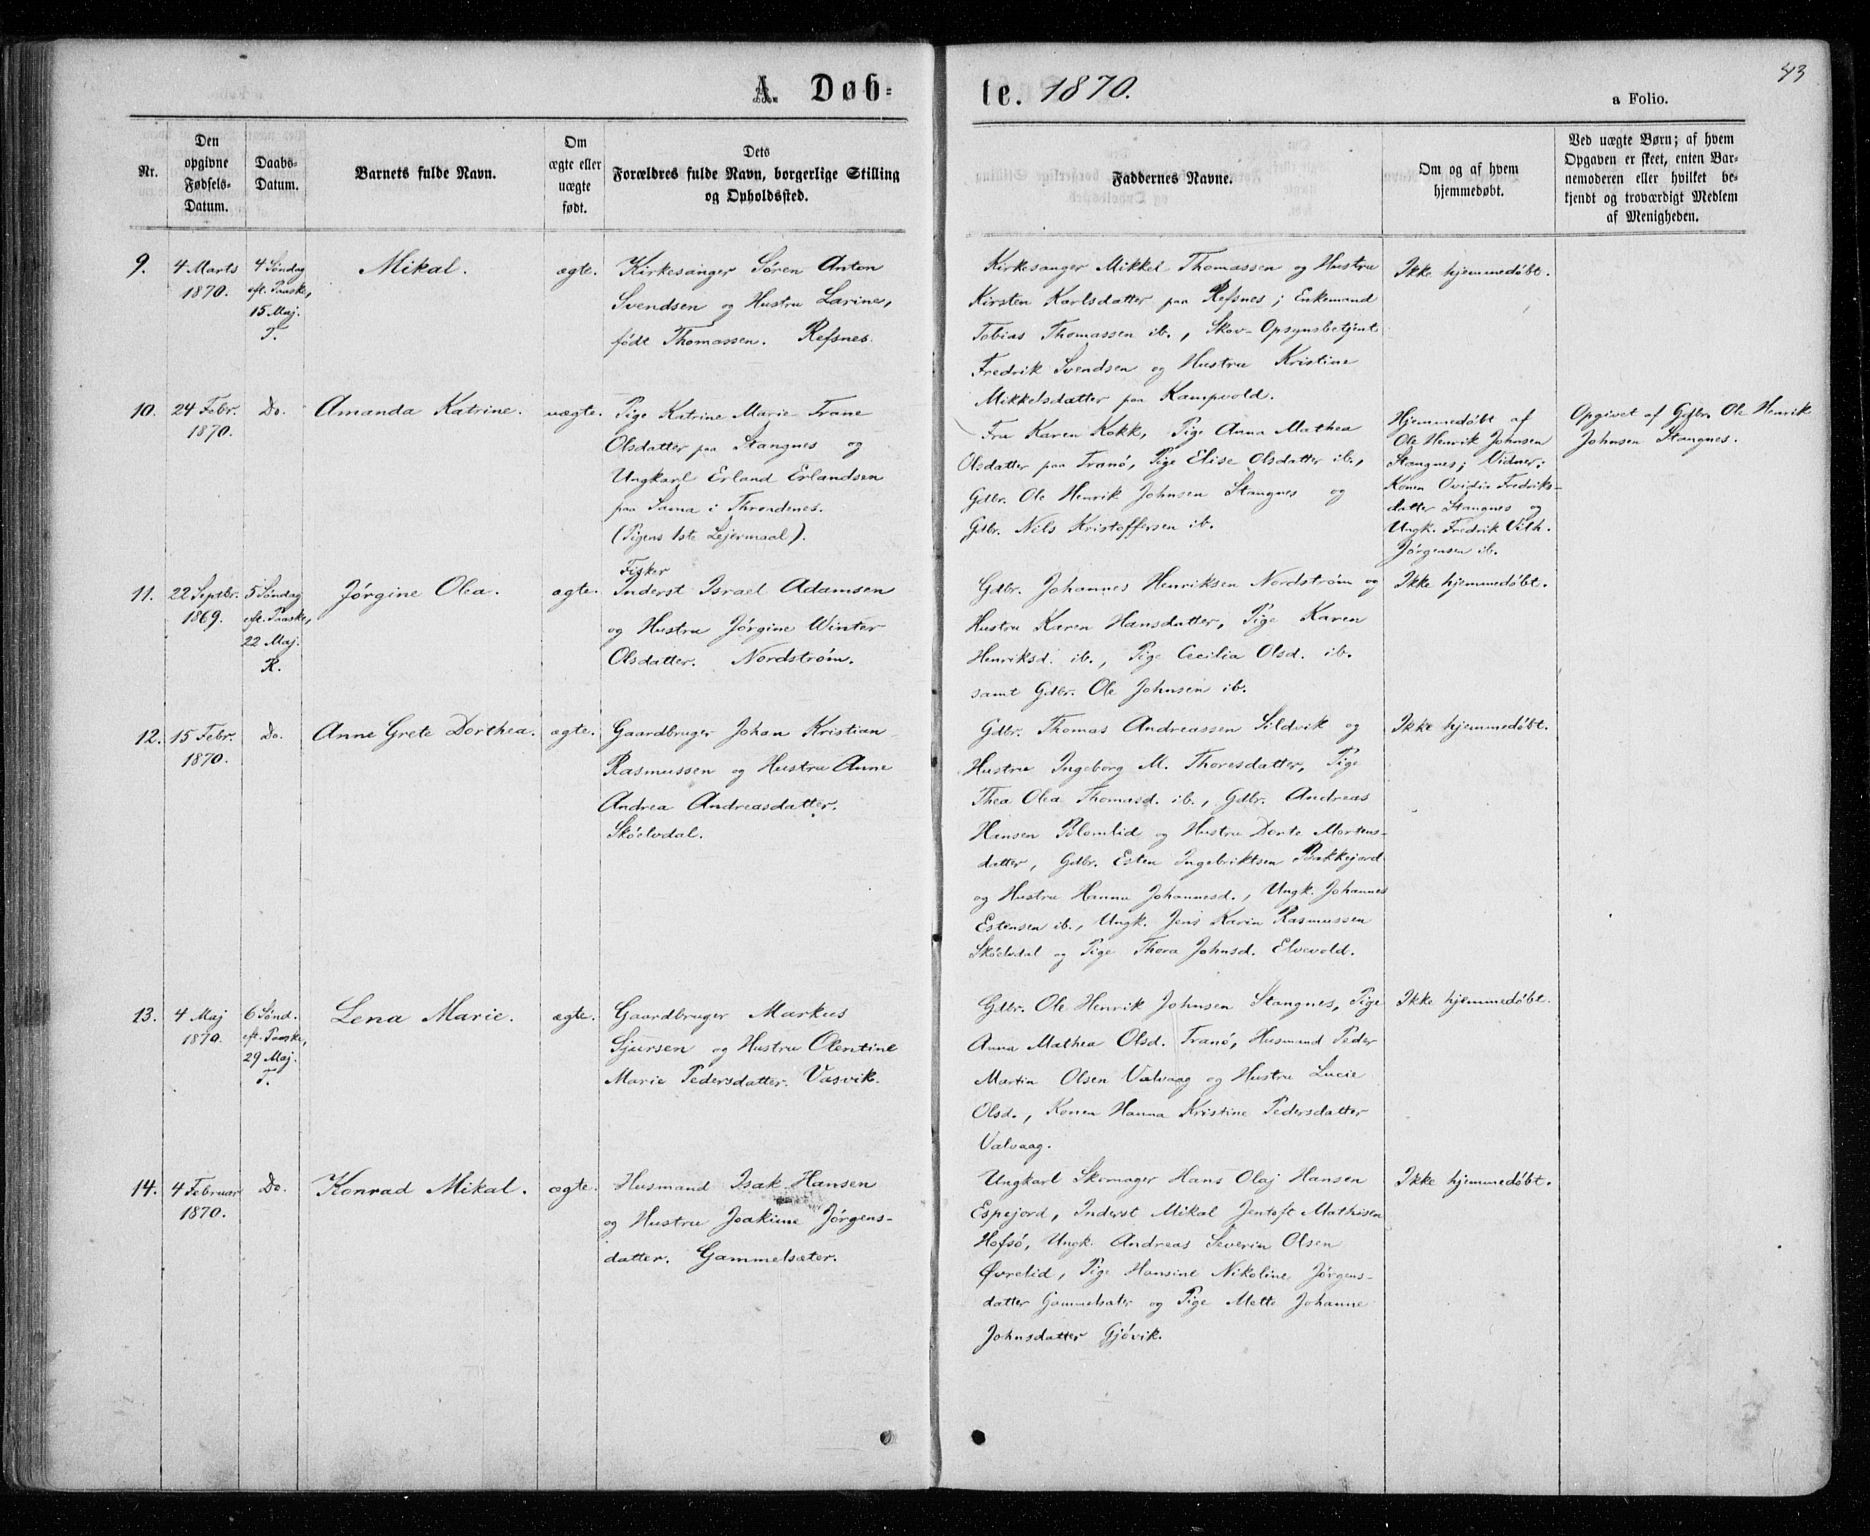 43
A. Døb-
te. 1870.
a Folio.
Nr.
Den
opgivne
Fødsels-
Datum.
Daabs-
Datum.
Barnets fulde Navn.
Om
ægte eller
uægte
født.
Dets
Forældres fulde Navn, borgerlige Stilling
og Opholdssted.
Faddernes Navne.
Om og af hvem
hjemmedøbt.
Ved uægte Børn; af hvem
Opgaven er skeet, enten Bar-
nemoderen eller hvilket be-
kjendt og troværdigt Medlem
af Menigheden.
9.
4 Marts
1870.
4 Søndag
eft. Paaske,
15 Maj.
T.
Mikal.
ægte.
Kirkesanger Søren Anton
Svendsen og Hustru Larine,
født Thomassen. Refsnes.
Kirkesanger Mikkel Thomassen og Hustru
Kirsten Karlsdatter paa Refsnes; Enkemand
Tobias Thomassen ib., Skov-Opsynsbetjent
Fredrik Svendsen og Hustru Kristine
Mikkelsdatter paa Kampvold.
Ikke hjemmedøbt.
10.
24 Febr.
1870.
Do.
Amanda Katrine.
uægte.
Pige Katrine Marie Trane
Olsdatter paa Stangnes og
Ungkarl Erland Erlandsen
paa Sama i Throndenes.
(Pigens 1ste Lejermaal).
Fru Karen Kokk, Pige Anna Mathea
Olsdatter paa Tranø, Pige Elise Olsdatter ib.,
Gdbr. Ole Henrik Johnsen Stangnes og
Gdbr. Nils Kristoffersen ib.
Hjemmedøbt af
Ole Henrik Johnsen
Stangnes; Vidner:
Konen Ovidia Fredriks-
datter Stangnes og
Ungk. Fredrik Vilh.
Jörgensen ib.
Opgivet af Gdbr. Ole Henrik
Johnsen Stangnes.
11.
22 Septbr.
1869.
5 Søndag
eft. Paaske,
22 Maj.
R.
Jörgine Olea.
ægte.
Fisker
Inderst Israel Adamsen
og Hustru Jörgine Winter
Olsdatter. Nordstrøm.
Gdbr. Johannes Henriksen Nordstrøm og
Hustru Karen Hansdatter, Pige Karen
Henriksd. ib., Pige Cecilia Olsd. ib.
samt Gdbr. Ole Johnsen ib.
Ikke hjemmedøbt.
12.
15 Febr.
1870.
Do.
Anne Grete Dorthea.
ægte.
Gaardbruger Johan Kristian
Rasmussen og Hustru Anne
Andrea Andreasdatter.
Sköelvdal.
Gdbr. Thomas Andreassen Sildvik og
Hustru Ingeborg M. Thoresdatter, Pige
Thea Olea Thomasd. ib., Gdbr. Andreas
Hansen Blomlid og Hustru Dorte Mortens-
datter, Gdbr. Esten Ingebriktsen Bakkejord
og Hustru Hanna Johannesd., Ungk. Johannes
Estensen ib., Ungk. Jens Karin Rasmussen
Sköelvdal og Pige Thora Johnsd. Elvevold.
Ikke hjemmedøbt.
13.
4 Maj
1870.
6 Sönd.
eft. Paaske,
29 Maj.
T.
Lena Marie.
ægte.
Gaardbruger Markus
Sjursen og Hustru Olentine
Marie Pedersdatter. Vasvik.
Gdbr. Ole Henrik Johnsen Stangnes, Pige
Anna Mathea Olsd. Tranö, Husmand Peder
Martin Olsen Valvaag og Hustru Lucie
Olsd., Konen Hanna Kristine Pedersdatter
Valvaag.
Ikke hjemmedøbt.
14.
4 Februar
1870.
Do.
Konrad Mikal.
ægte.
Husmand Isak Hansen
og Hustru Joakime Jörgens-
datter. Gammelsæter.
Ungkarl Skomager Hans Olaj Hansen
Espejord, Inderst Mikal Jentoft Mathisen
Hofsö, Ungk. Andreas Severin Olsen
Øvrelid, Pige Hansine Nikoline Jörgens-
datter Gammelsæter og Pige Mette Johanne
Johnsdatter Gjövik.
Ikke hjemmedøbt.